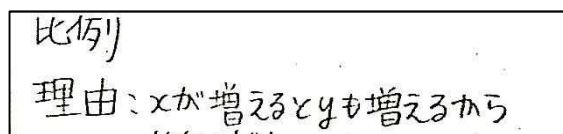 比例
理由：xが増えるとyも増えるから